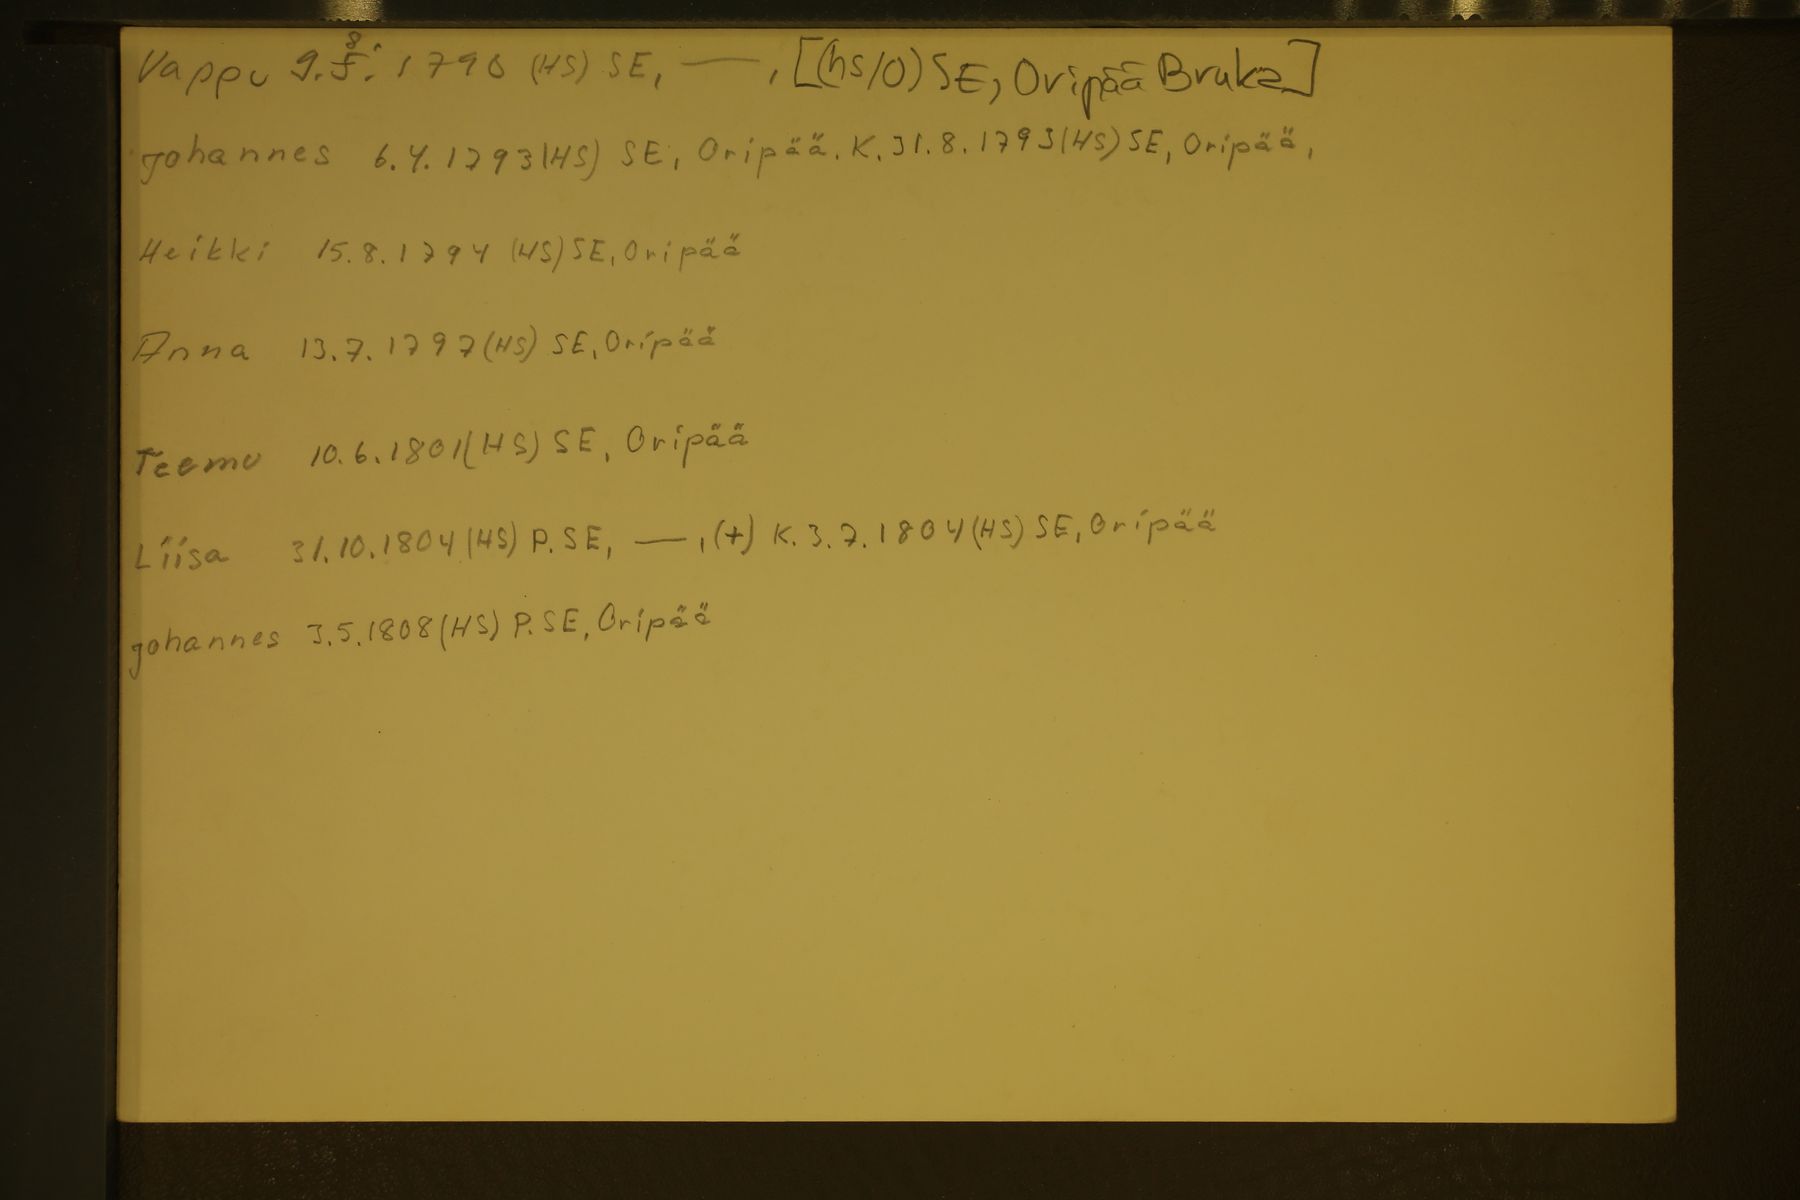 Vappu 9.8. 1790 (HS) SE, —, [(hs/O) SE, Oripää Bruka]
Johannes 6.4.1793(HS) SE, Oripää. K. 31.8.1793(HS) SE, Oripää,
Heikki 15.8.1794 (HS) SE, Oripää
Anna 13.7.1797(HS) SE, Oripää
Teemu 10.6.1801(HS) SE, Oripää
Liisa 31.10.1804(HS) P.SE, —, (+) K. 3.7.1804(HS) SE, Oripää
Johannes 3.5.1808(HS) P.SE, Oripää